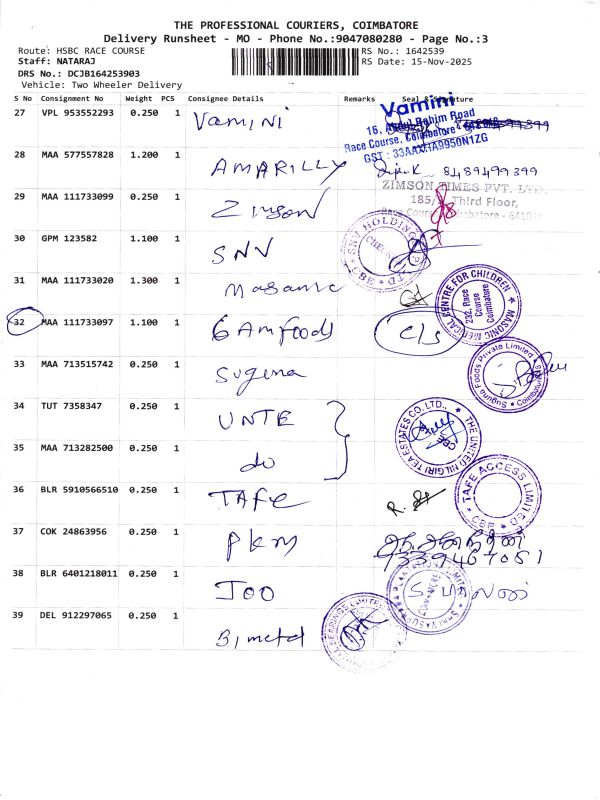 THE PROFESSIONAL COURIERS, COIMBATORE
Delivery Runsheet - MO - Phone No.:9047080280 - Page No.:3
Route: HSBC RACE COURSE
RS No.: 1642539
Staff: NATARAJ
RS Date: 15-Nov-2025
DRS No.: DCJB164253903
Vehicle: Two Wheeler Delivery
S No Consignment No Weight PCS Consignee Details Remarks Seal & Signature
27 VPL 953552293 0.250 1 Vamini
Vamini
16, Abdul Rahim Road
Race Course, Coimbatore
28 MAA 577557828 1.200 1 AMARILLY 8489499399
29 MAA 111733099 0.250 1 Zimson
ZIMSON TIMES PVT. LTD.
Third Floor,
30 GPM 123582 1.100 1 SNV
31 MAA 111733020 1.300 1 Masanic
MASONIC MEDICAL CENTRE FOR CHILDREN
232, Race
Course
Coimbatore
32 MAA 111733097 1.100 1 6 Am foods C/s
33 MAA 713515742 0.250 1 Suguna
Suguna Foods Private Limited
Coimbatore
34 TUT 7358347 0.250 1 UNTE
THE UNITED NILGIRI TEA ESTATES CO. LTD.,
CBE
35 MAA 713282500 0.250 1 do
36 BLR 5910566510 0.250 1 TAFE
TAFE ACCESS LIMITED
CBE
37 COK 24863956 0.250 1 PKM
38 BLR 6401218011 0.250 1 JOO
39 DEL 912297065 0.250 1 Bimetal